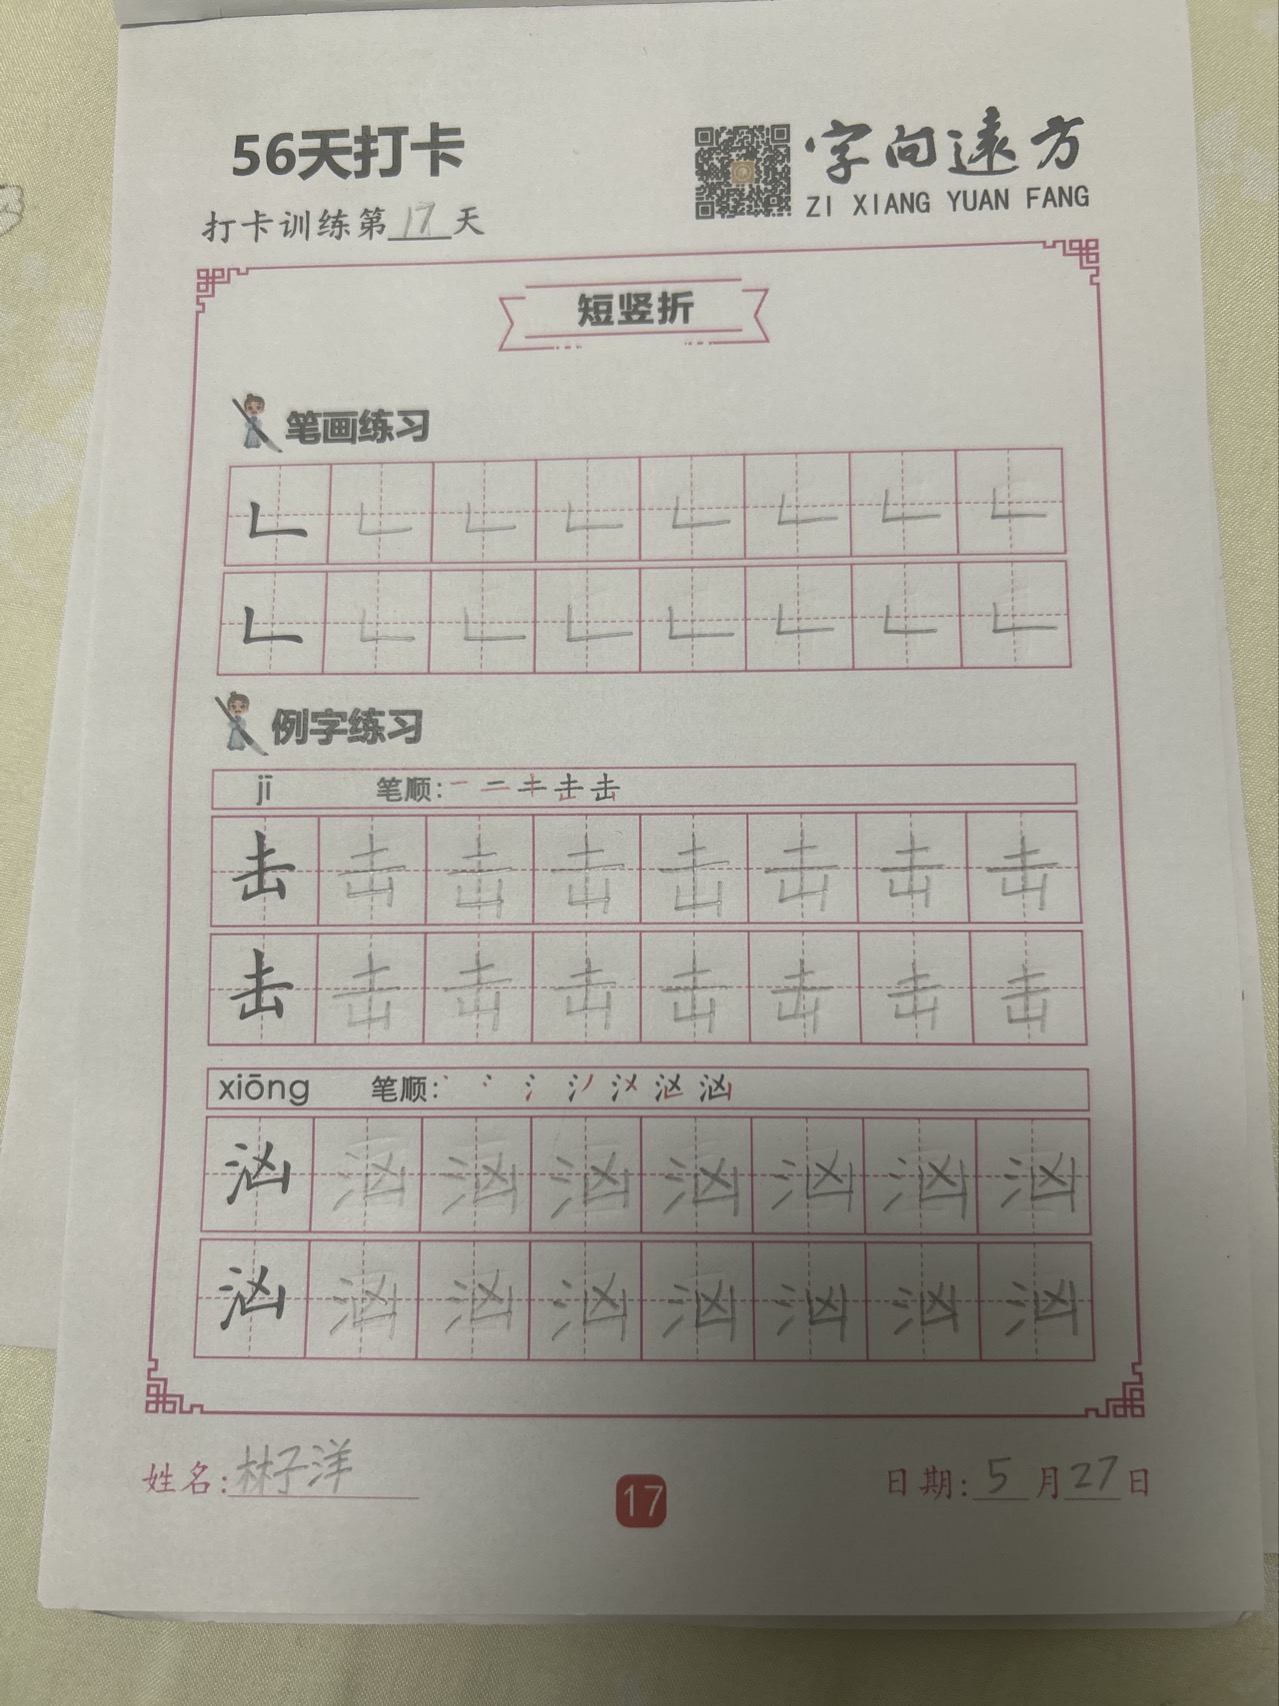 56天打卡
字向遠方
ZI XIANG YUAN FANG
打卡训练第17天
短竖折
笔画练习
𠃊 𠃊 𠃊 𠃊 𠃊 𠃊 𠃊 𠃊
𠃊 𠃊 𠃊 𠃊 𠃊 𠃊 𠃊 𠃊
例字练习
jī 笔顺:
击 击 击 击 击 击 击 击
击 击 击 击 击 击 击 击
xiōng 笔顺:
汹 汹 汹 汹 汹 汹 汹 汹
汹 汹 汹 汹 汹 汹 汹 汹
姓名:林子洋
17
日期:5月27日